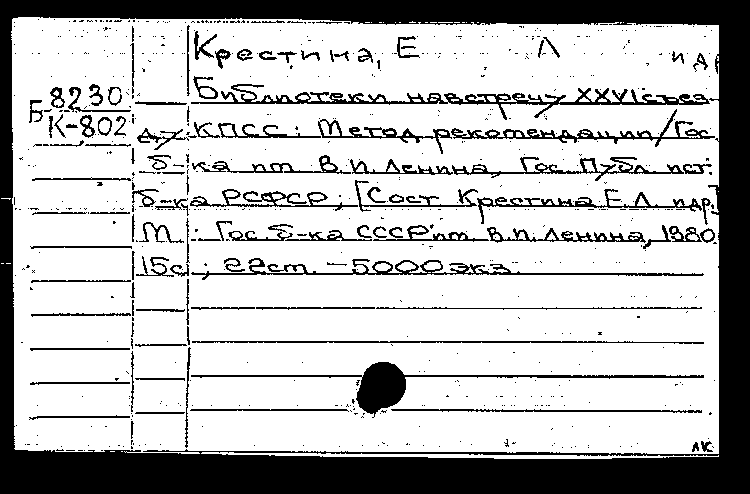 Крестина, Е Л и др
Б 8230
К-802
Библиотеки навстречу XXVI съез-
ду КПСС: Метод рекомендации/Гос
б-ка им. В.И. Ленина, Гос. Публ. ист.
б-ка РСФСР; [Сост Крестина Е.Л. и др.]
М.: Гос. б-ка СССР им. В.И. Ленина, 1980
15с; 22 см. - 5000 экз.
ЛК